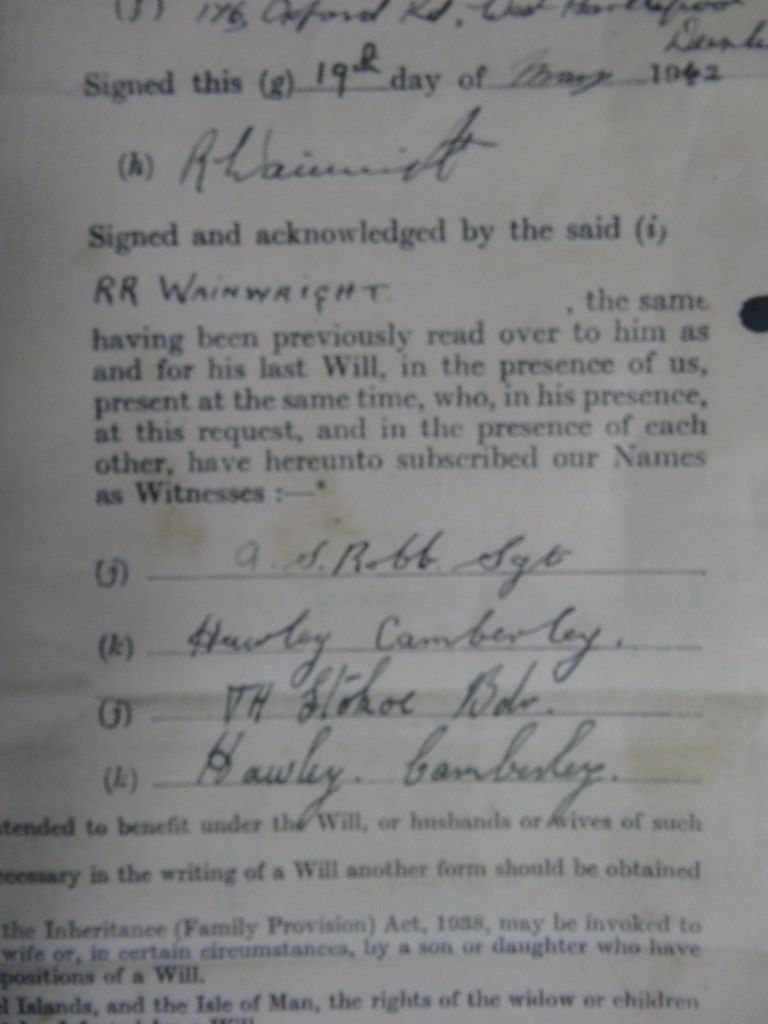 (f) 176, Oxford Rd, West Hartlepool
Signed this (g) 19th day of May 1942
(h) R Wainwright
Signed and acknowledged by the said (i)
RR WAINWRIGHT. , the same
having been previously read over to him as
and for his last Will, in the presence of us,
present at the same time, who, in his presence,
at this request, and in the presence of each
other, have hereunto subscribed our Names
as Witnesses :—*
(j) A. S. Robb. Sgt
(k) Hawley Camberley.
(j) TH Stokoe Bdr.
(k) Hawley. Camberley.
ntended to benefit under the Will, or husbands or wives of such
ecessary in the writing of a Will another form should be obtained
the Inheritance (Family Provision) Act, 1938, may be invoked to
wife or, in certain circumstances, by a son or daughter who have
positions of a Will.
el Islands, and the Isle of Man, the rights of the widow or children
a Will.